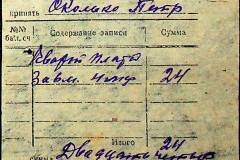 принять Околико Петр
№№ бал. сч Содержание записи Сумма
Кварт плата
Завм. 24
Итого 24
Сумма Двадцать четыре